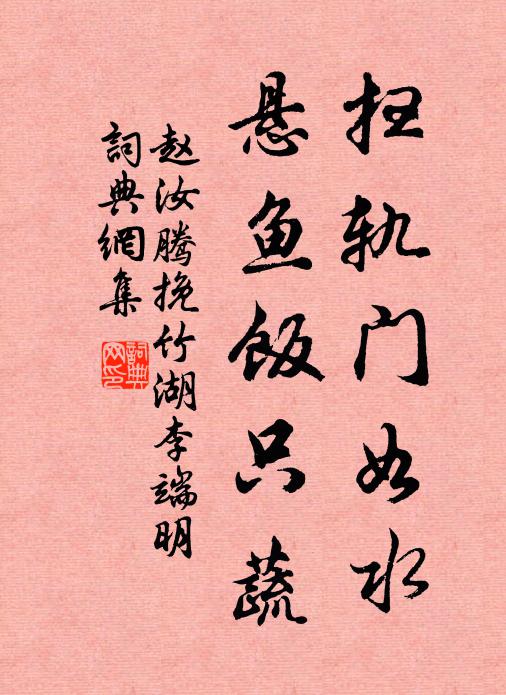 扫轨门如水
悬鱼饭只蔬
赵汝腾挽竹湖李端明
詞典網集
詞典
网印